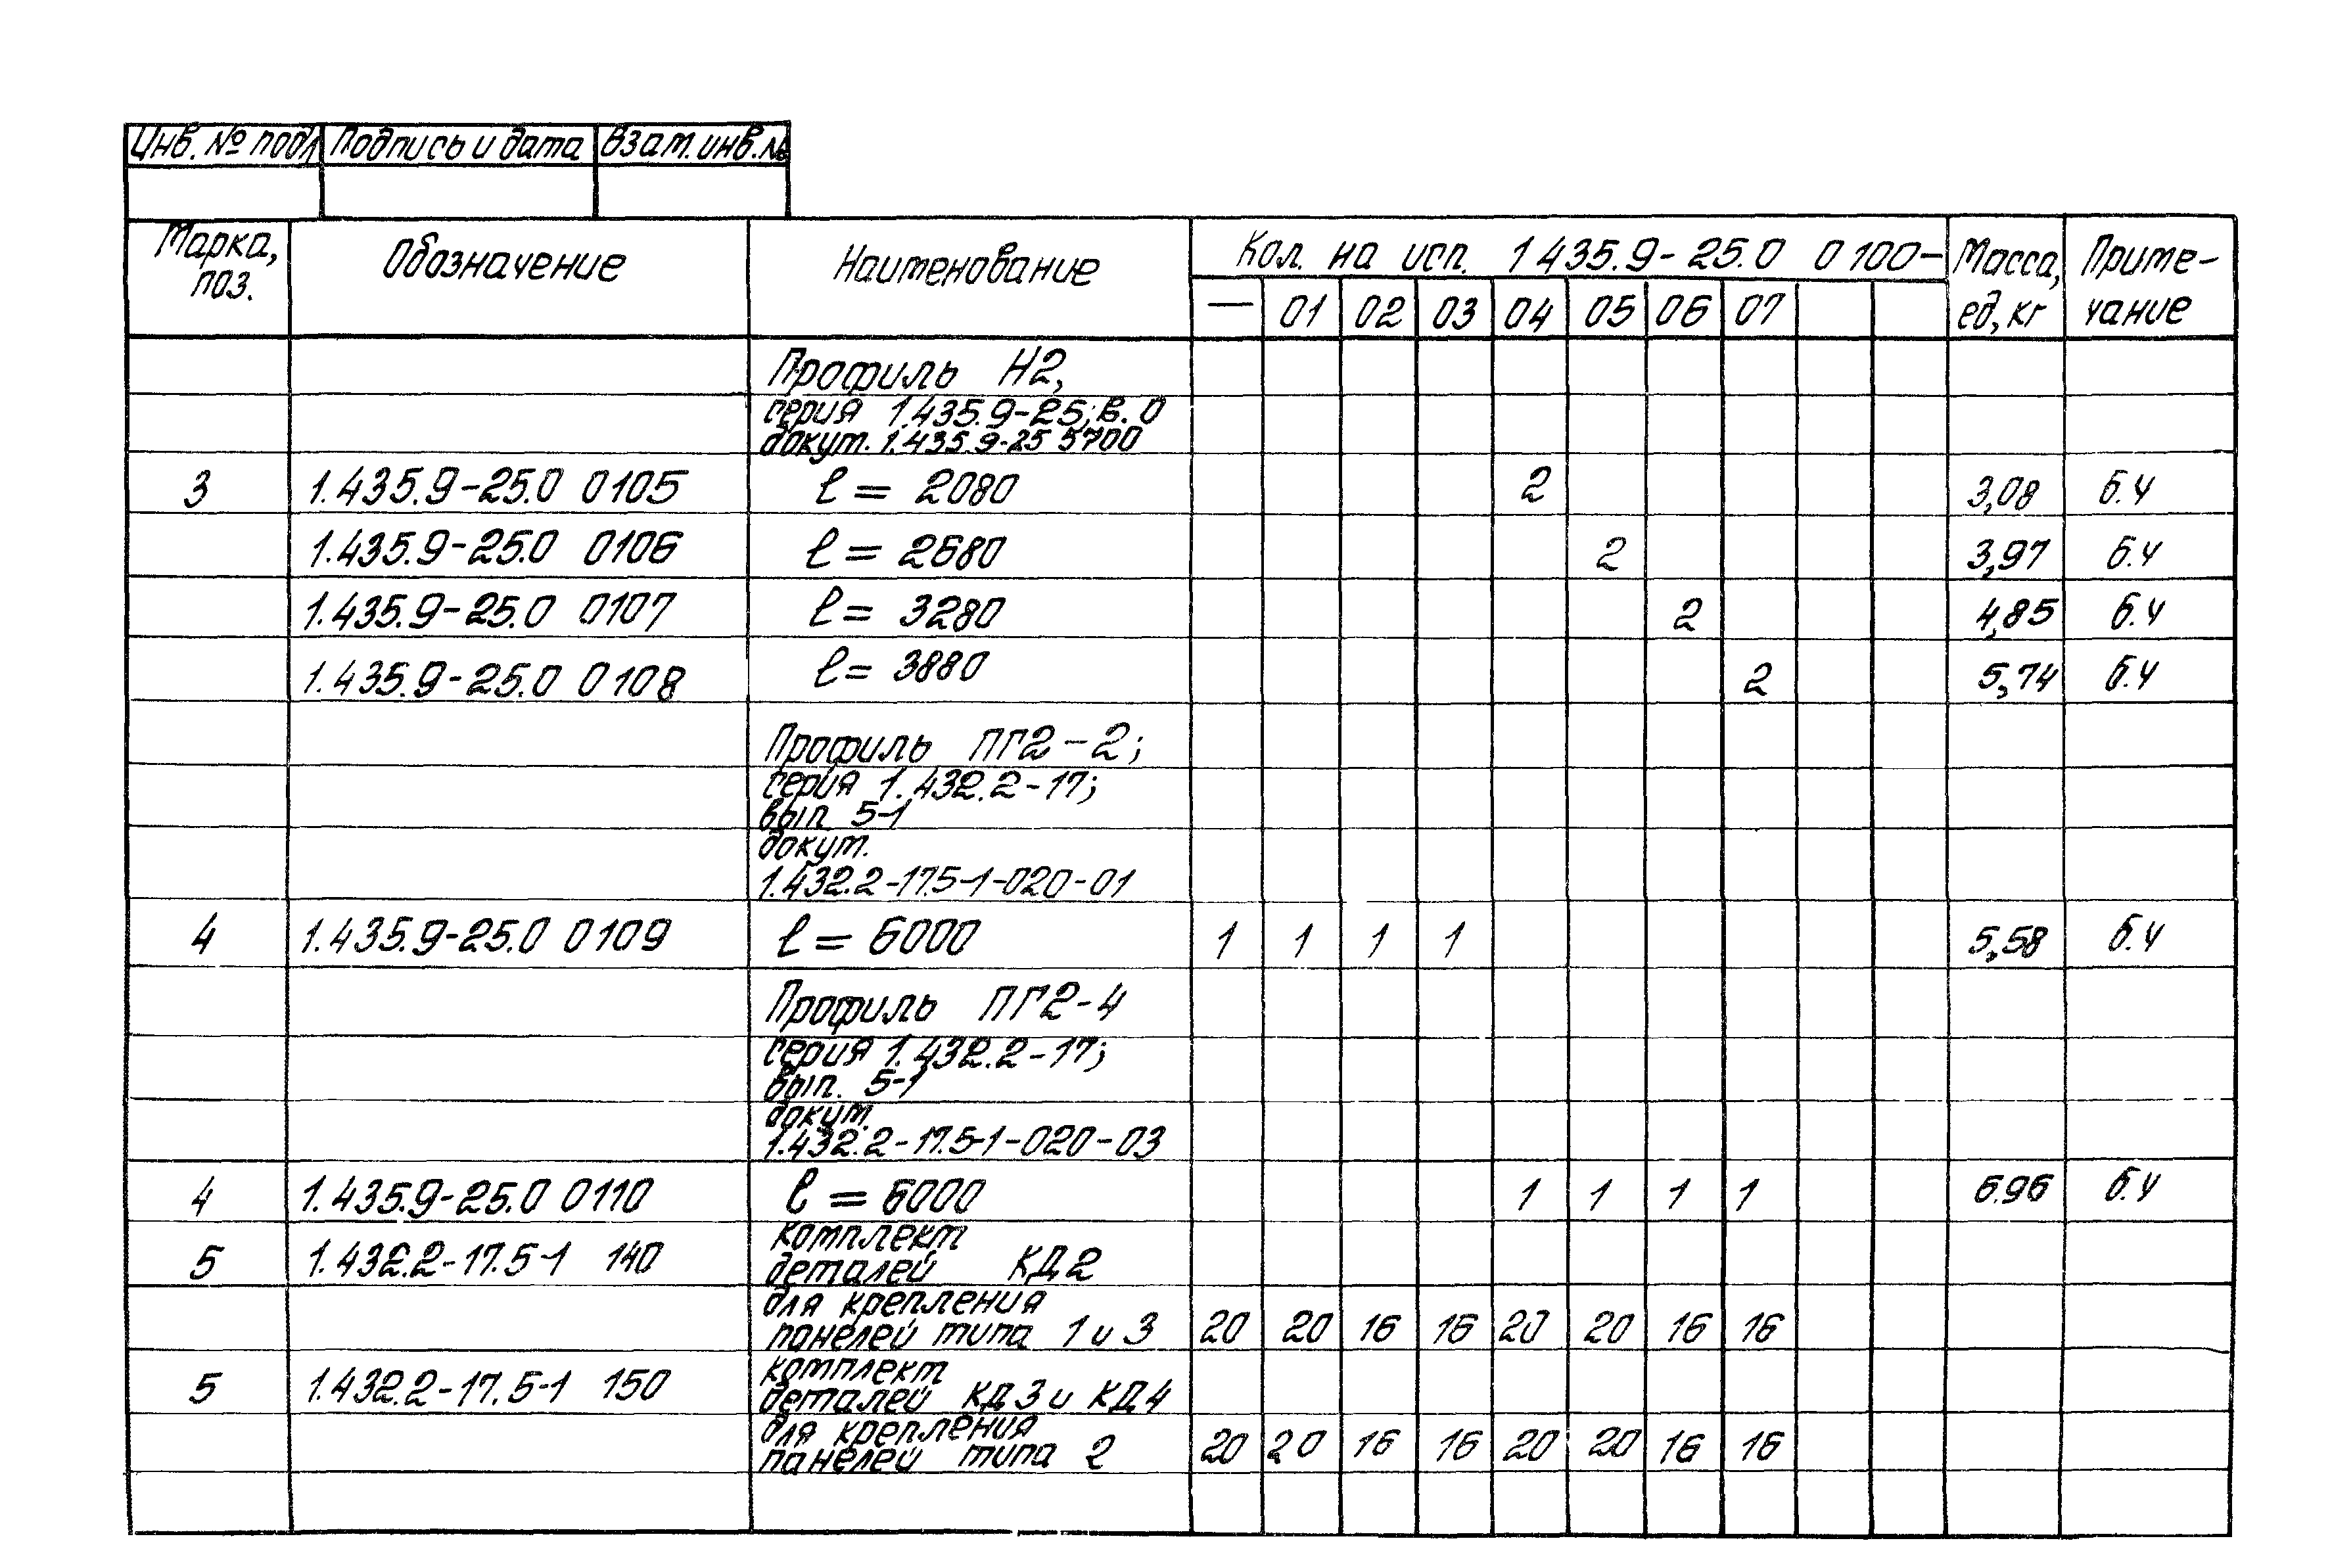 Инв. № подл Подпись и дата Взам. инв. №
Марка, поз. Обозначение Наименование Кол. на исп. 1 435.9-25.0 0100- Масса, ед, кг Приме- чание
— 01 02 03 04 05 06 07
Профиль Н2,
серия 1.435.9-25; в. 0
докум. 1.435.9-25 5700
3 1.435.9-25.0 0105 ℓ = 2080 2 3,08 б.ч
1.435.9-25.0 0106 ℓ = 2680 2 3,97 б.ч
1.435.9-25.0 0107 ℓ = 3280 2 4,85 б.ч
1.435.9-25.0 0108 ℓ = 3880 2 5,74 б.ч
Профиль ПГ2-2;
серия 1.432.2-17;
вып. 5-1
докум.
1.432.2-17.5-1-020-01
4 1.435.9-25.0 0109 ℓ = 6000 1 1 1 1 5,58 б.ч
Профиль ПГ2-4
серия 1.432.2-17;
вып. 5-1
докум.
1.432.2-17.5-1-020-03
4 1.435.9-25.0 0110 ℓ = 6000 1 1 1 1 6.96 б.ч
комплект
5 1.432.2-17.5-1 140 деталей КД2
для крепления
панелей типа 1 и 3 20 20 16 16 20 20 16 16
комплект
5 1.432.2-17.5-1 150 деталей КД3 и КД4
для крепления
панелей типа 2 20 20 16 16 20 20 16 16